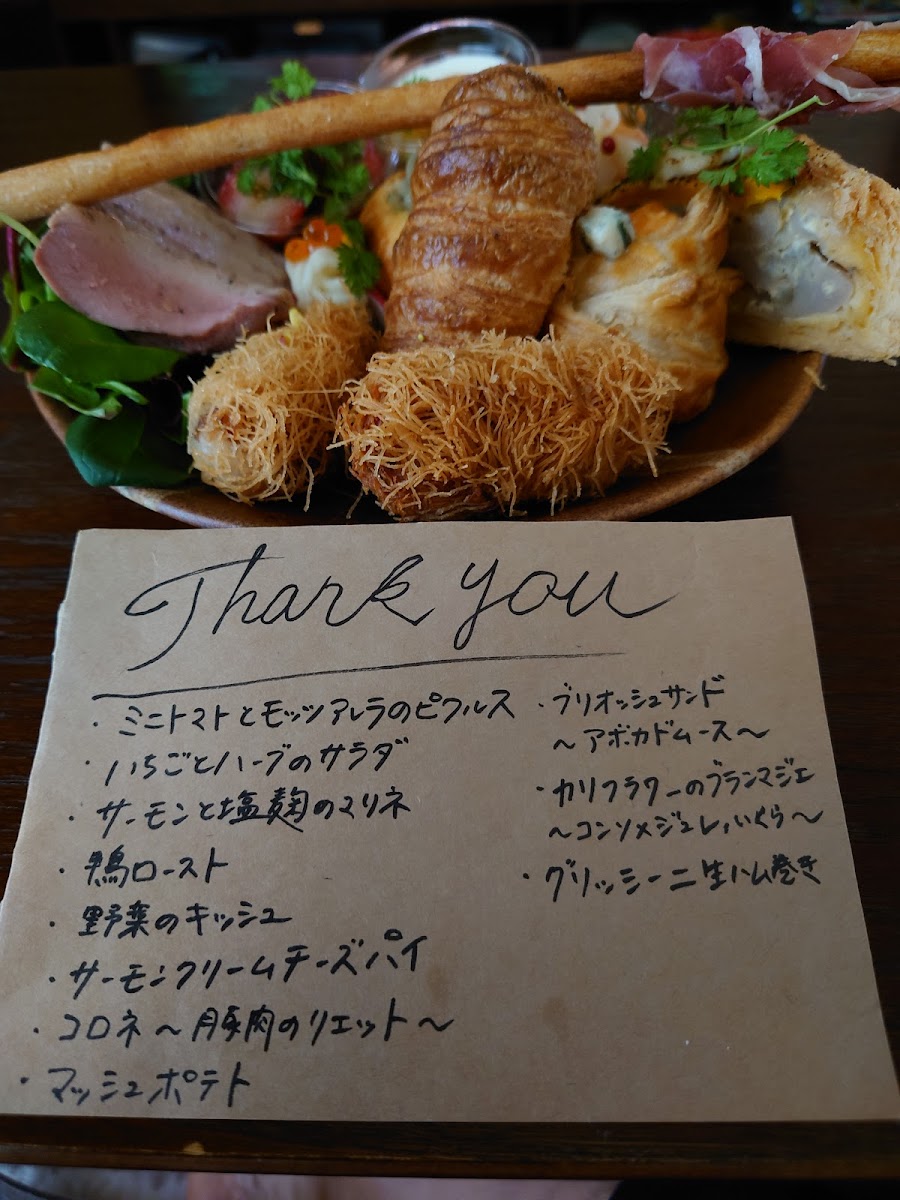 Thank you
・ミニトマトとモッツアレラのピクルス
・いちごとハーブのサラダ
・サーモンと塩麹のマリネ
・鴨ロースト
・野菜のキッシュ
・サーモンクリームチーズパイ
・コロネ～豚肉のリエット～
・マッシュポテト
・ブリオッシュサンド
～アボカドムース～
・カリフラワーのブランマジェ
～コンソメジュレ,いくら～
・グリッシーニ生ハム巻き